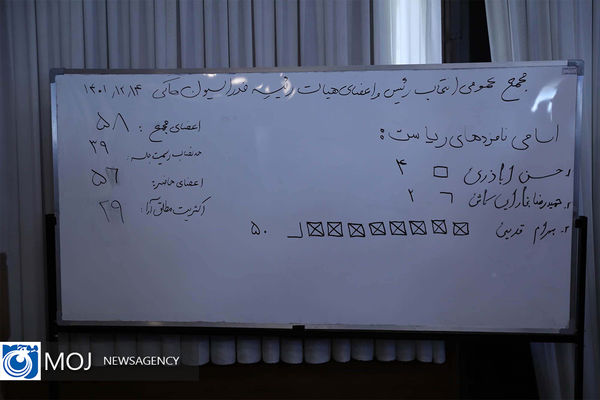 مجمع عمومی انتخاب رئیس و اعضای هیات رئیسه فدراسیون هاکی ۱۴۰۱/۱۲/۴
اسامی نامزدهای ریاست:
۱. حسن اباذری ۴
۲. حمیدرضا ۲
۳. بهرام قدیمی ۵۰
اعضای مجمع: ۵۸
حد نصاب رسمیت جلسه: ۳۹
اعضای حاضر: ۵۶
اکثریت مطلق آرا: ۲۹
MOJ NEWSAGENCY